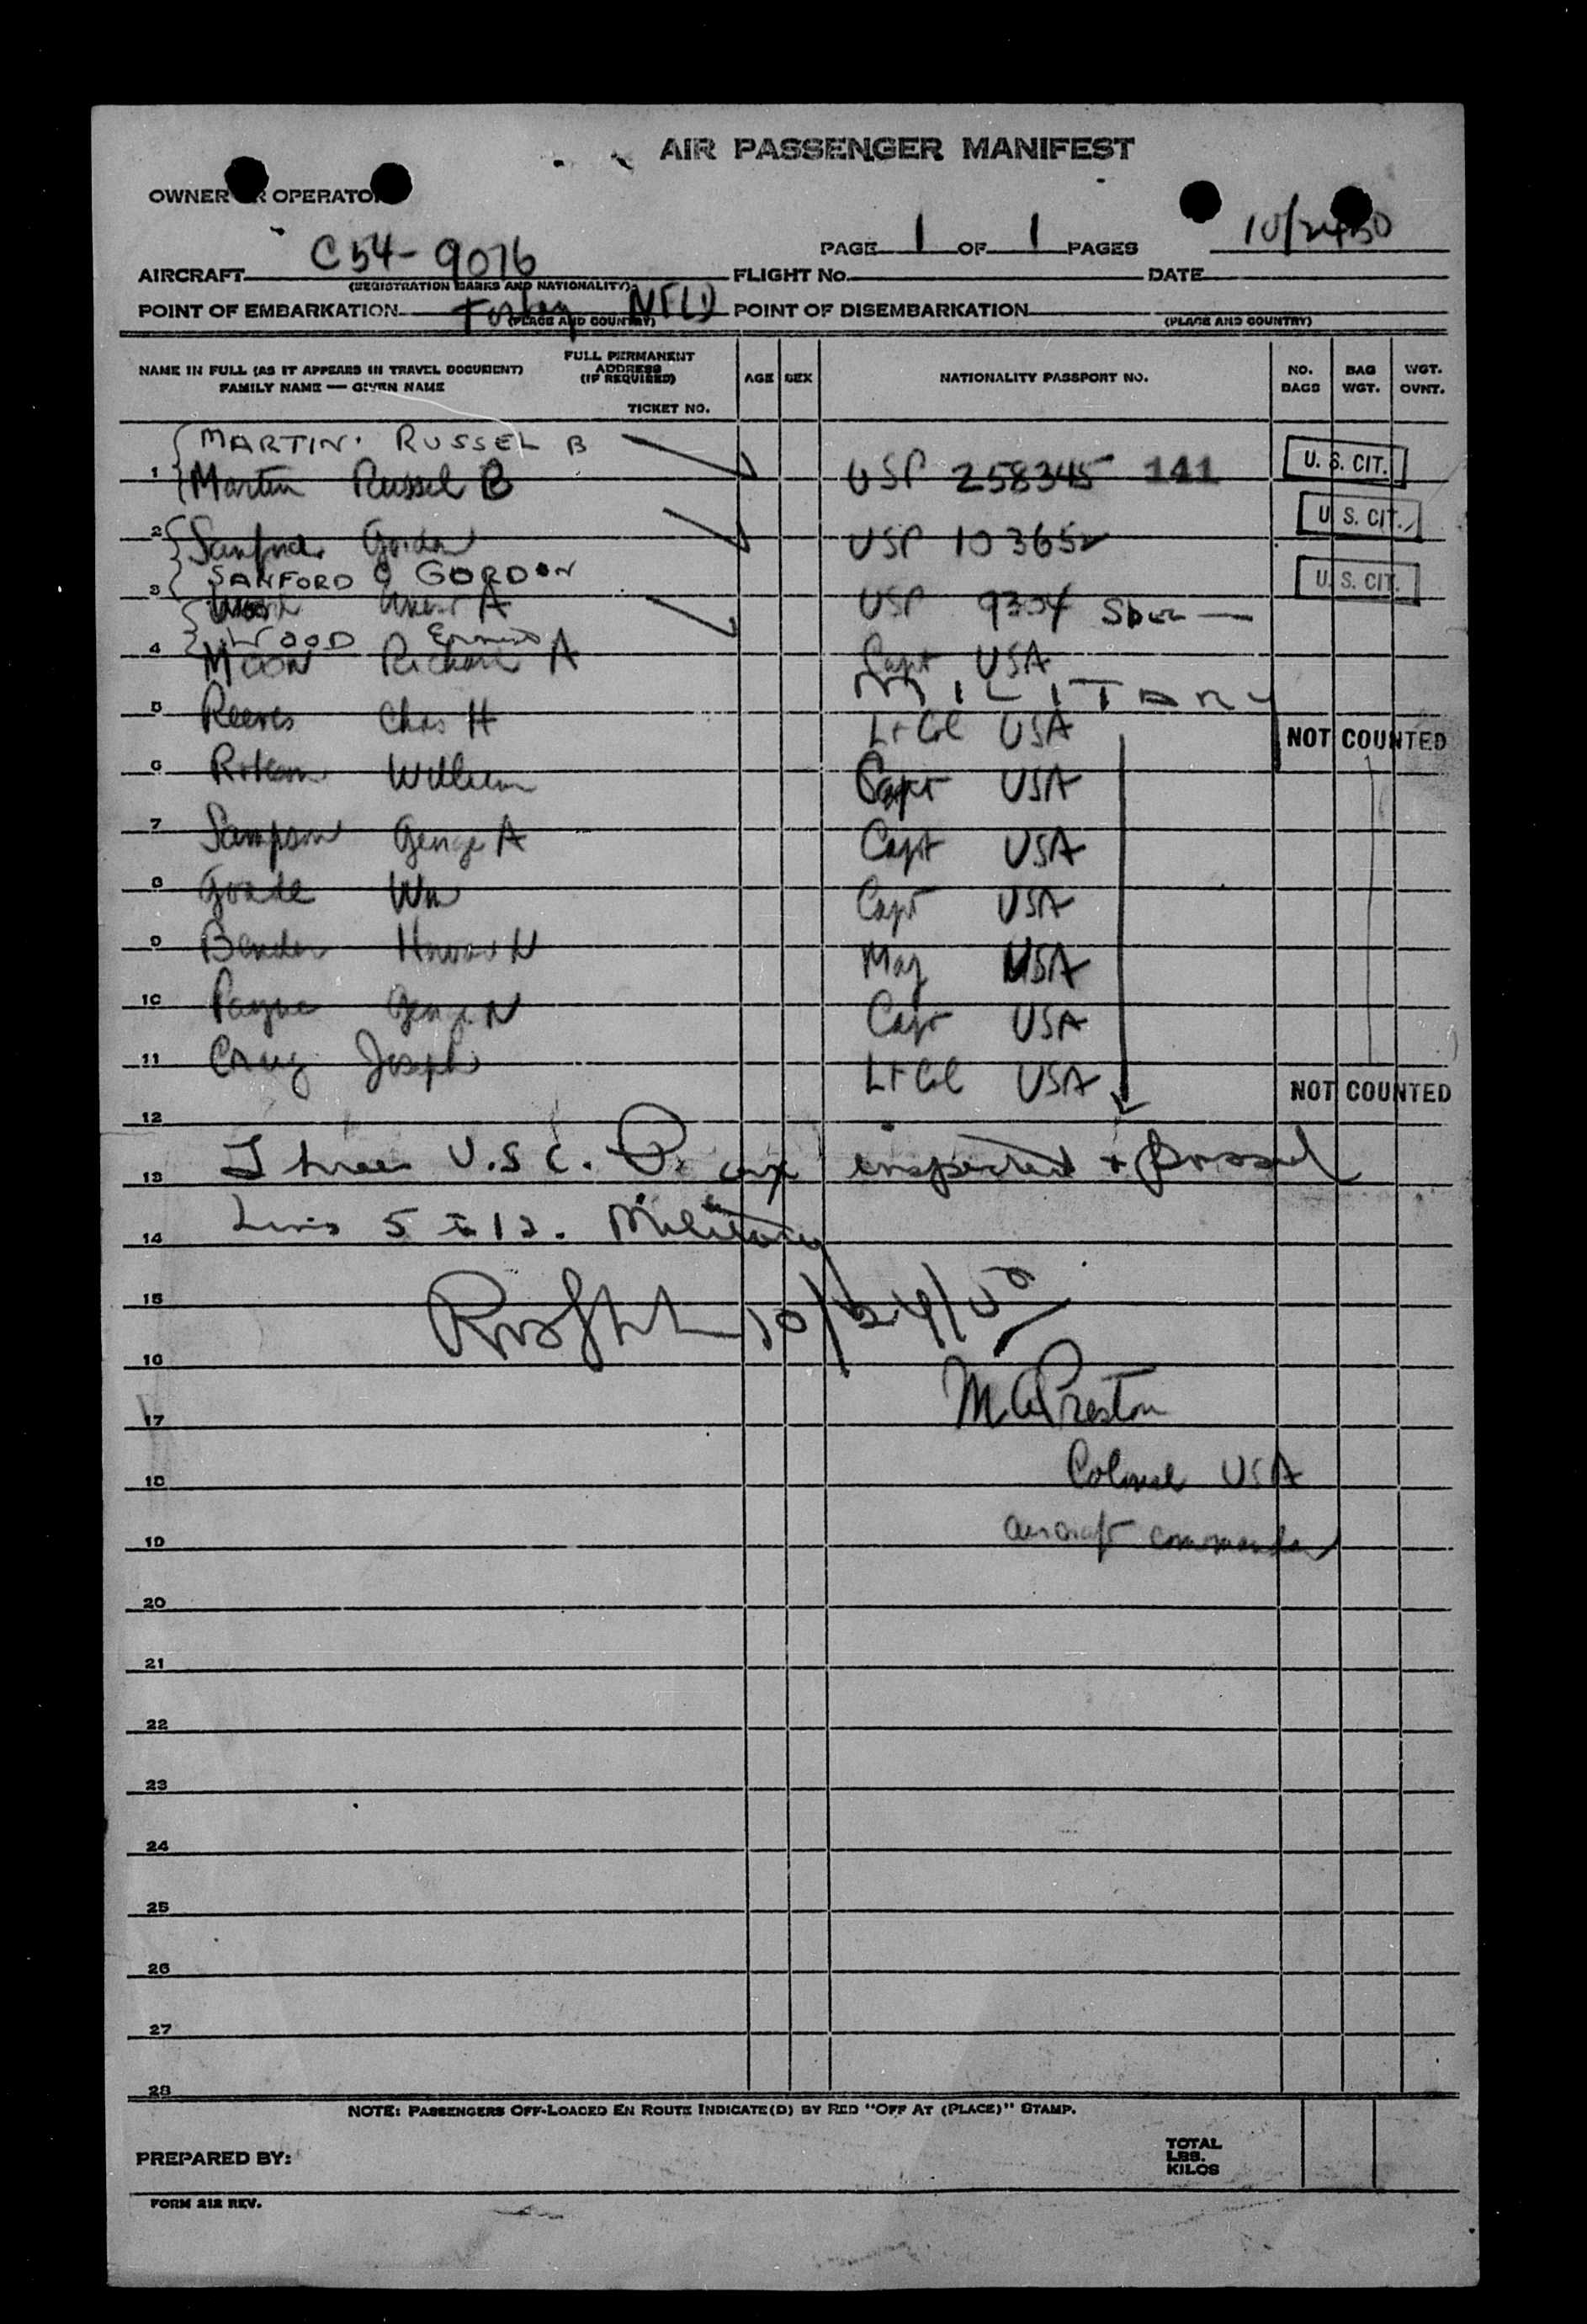 AIR PASSENGER MANIFEST
OWNER OR OPERATOR
PAGE 1 OF 1 PAGES 10/24/50
AIRCRAFT C54-9076 FLIGHT No. DATE
(REGISTRATION MARKS AND NATIONALITY)
POINT OF EMBARKATION NFLD POINT OF DISEMBARKATION
(PLACE AND COUNTRY) (PLACE AND COUNTRY)
NAME IN FULL (AS IT APPEARS IN TRAVEL DOCUMENT) FAMILY NAME — GIVEN NAME FULL PERMANENT ADDRESS (IF REQUIRED) TICKET NO. AGE SEX NATIONALITY PASSPORT NO. NO. BAGS BAG WGT. WGT. OVNT.
MARTIN. RUSSEL B
1 Martin Russel B USP 258345 141 U. S. CIT.
2 Sanford Gordon USP 103652 U. S. CIT.
SANFORD GORDON
3 Wood A USP 9304 U. S. CIT.
WOOD
4 Moon Richard A Capt USA
MILITARY
5 Reeves Chas H Lt Col USA NOT COUNTED
6 William Capt USA
7 Sampson George A Capt USA
8 Goade Wm Capt USA
9 Bender Howard N Maj USA
10 Payne George N Capt USA
11 Craig Joseph Lt Col USA NOT COUNTED
12
13 Three U.S.C. inspected + passed
14 Lines 5 to 12. Military
15 10/24/50
16
17 M. A. Preston
18 Colonel USA
19 aircraft commander
20
21
22
23
24
25
26
27
28
NOTE: PASSENGERS OFF-LOADED EN ROUTE INDICATE(D) BY RED "OFF AT (PLACE)" STAMP.
PREPARED BY: TOTAL LBS. KILOS
FORM 212 REV.